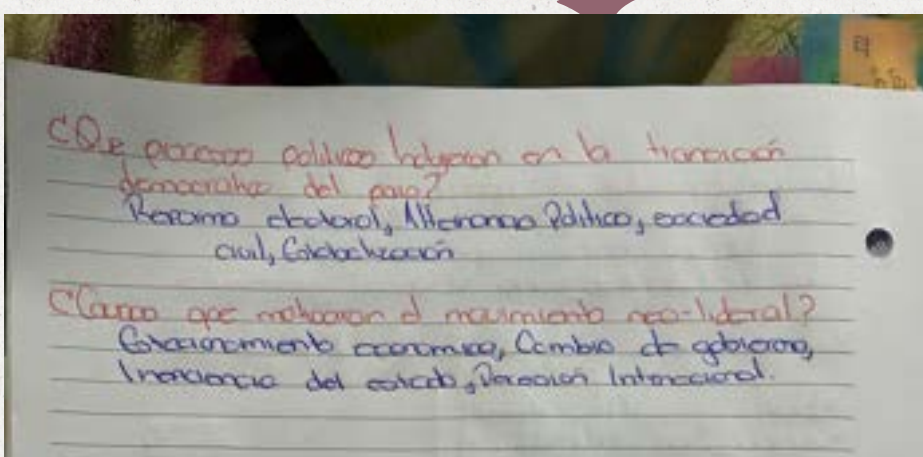 ¿Que procesos politicos influyeron en la transición
democratica del pais?
Reforma electoral, Alternancia Politica, sociedad
civil, Globalización
¿Causas que motivaron el movimiento neo-liberal?
Estancamiento economico, Cambio de gobierno,
del estado, Presión Internacional.